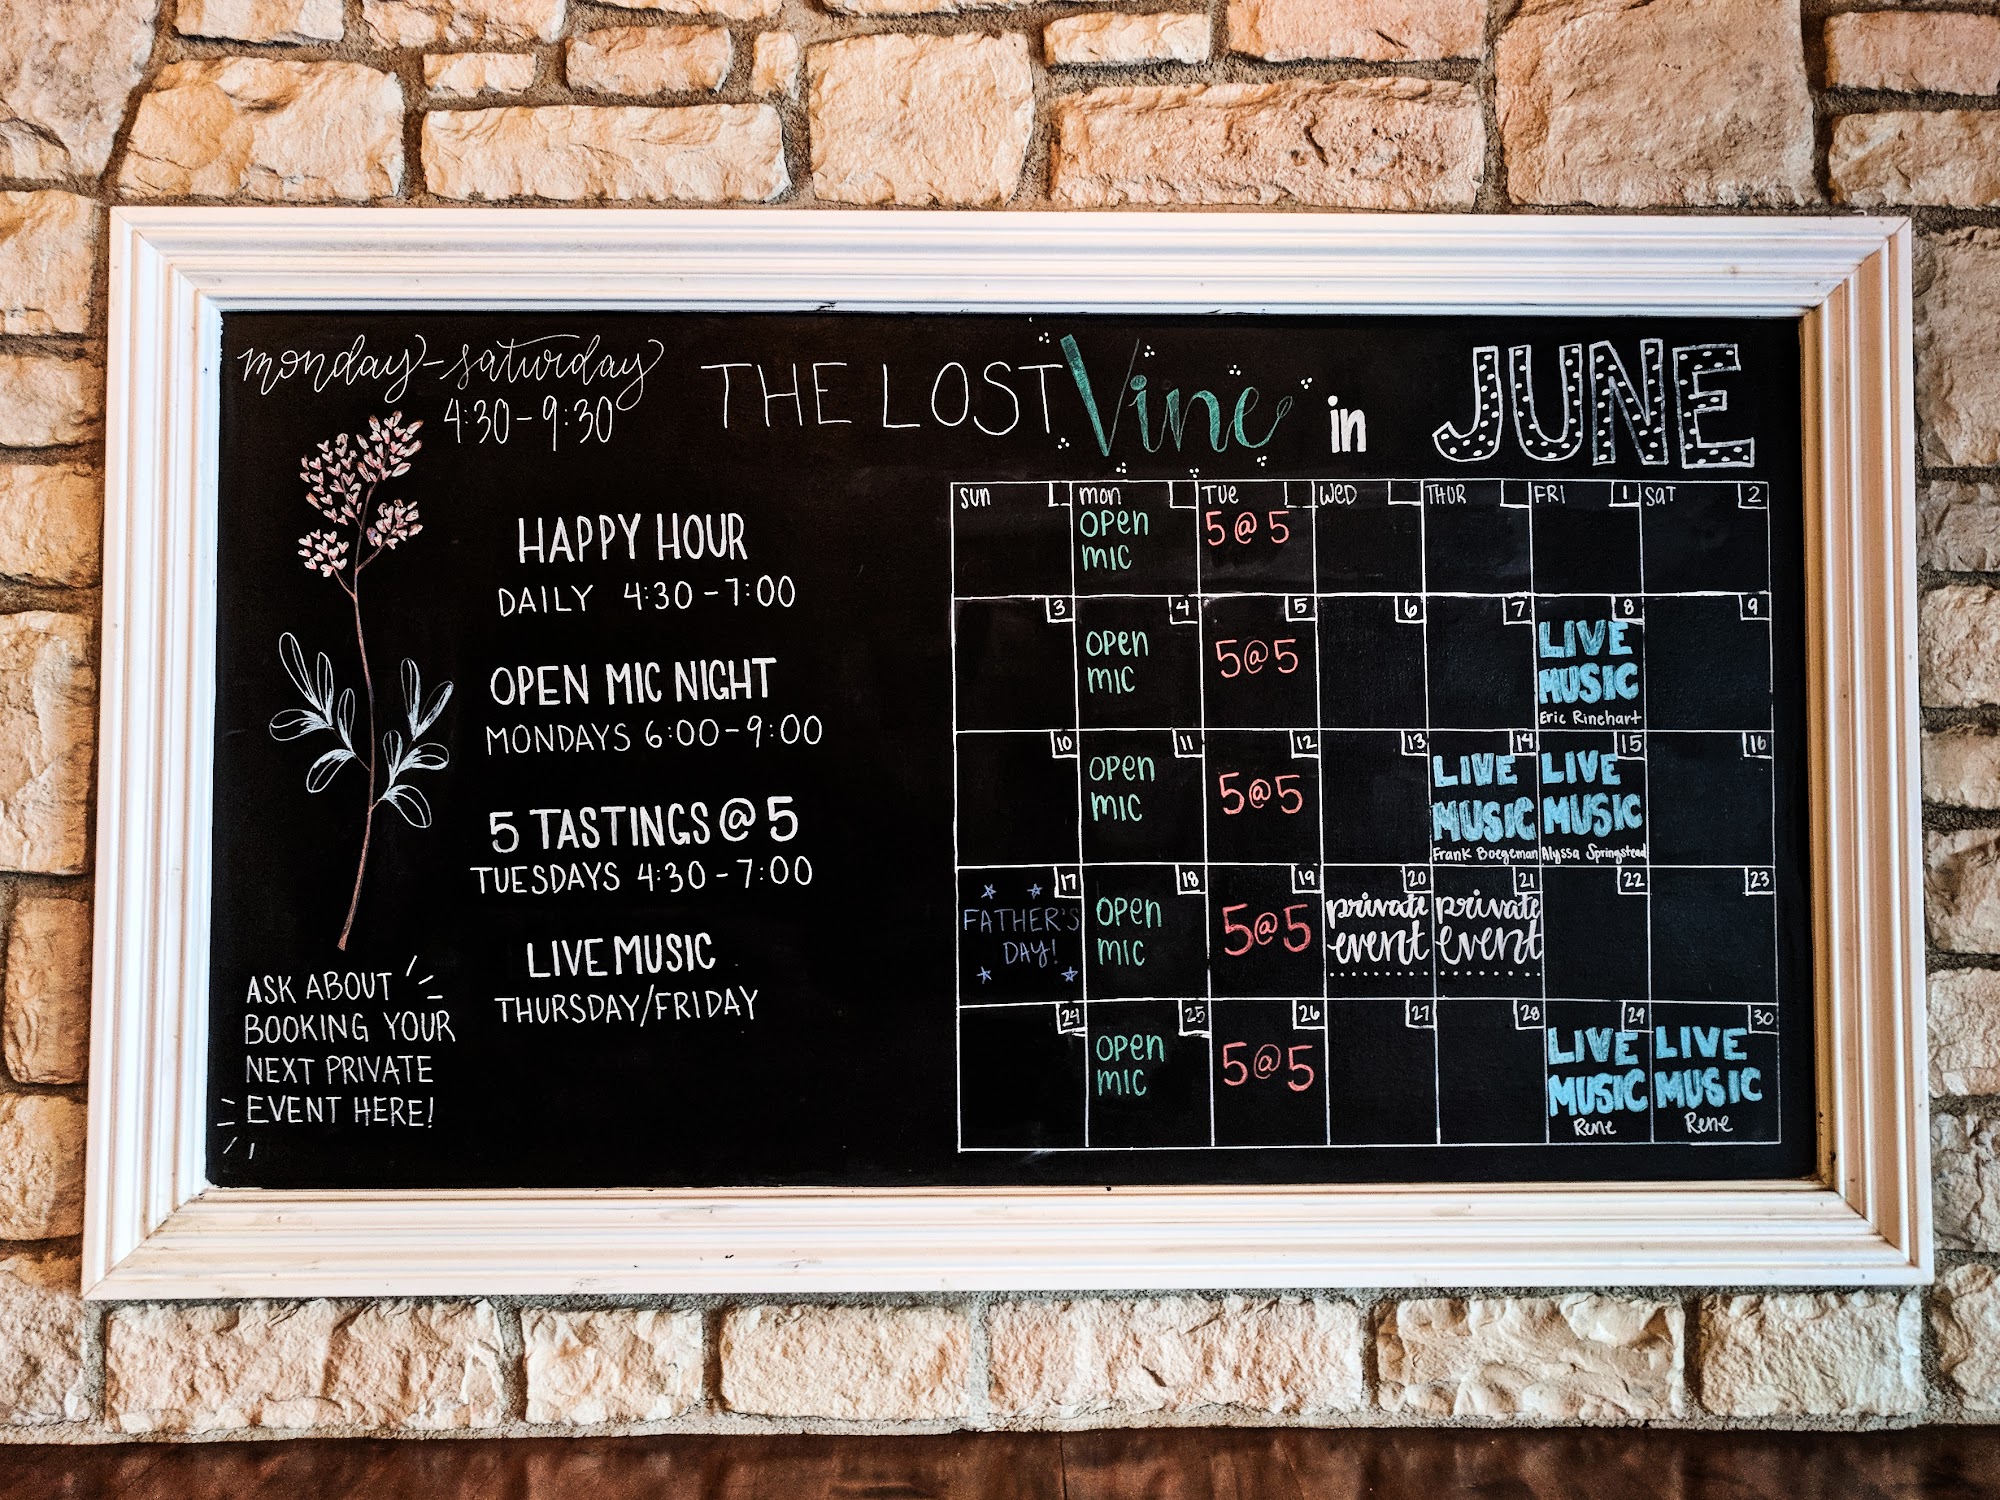 monday-saturday
4:30-9:30
THE LOST Vine in JUNE
HAPPY HOUR
DAILY 4:30-7:00
OPEN MIC NIGHT
MONDAYS 6:00-9:00
5 TASTINGS @ 5
TUESDAYS 4:30-7:00
LIVE MUSIC
THURSDAY/FRIDAY
ASK ABOUT
BOOKING YOUR
NEXT PRIVATE
EVENT HERE!
sun mon TUE WED THUR FRI 1 SAT 2
open 5@5
mic
3 4 5 6 7 8 9
open 5@5 LIVE
mic MUSIC
Eric Rinehart
10 11 12 13 14 15 16
open 5@5 LIVE LIVE
mic MUSIC MUSIC
Frank Boegeman Alyssa Springstead
17 18 19 20 21 22 23
FATHER'S open 5@5 private private
DAY! mic event event
24 25 26 27 28 29 30
open 5@5 LIVE LIVE
mic MUSIC MUSIC
Rene Rene